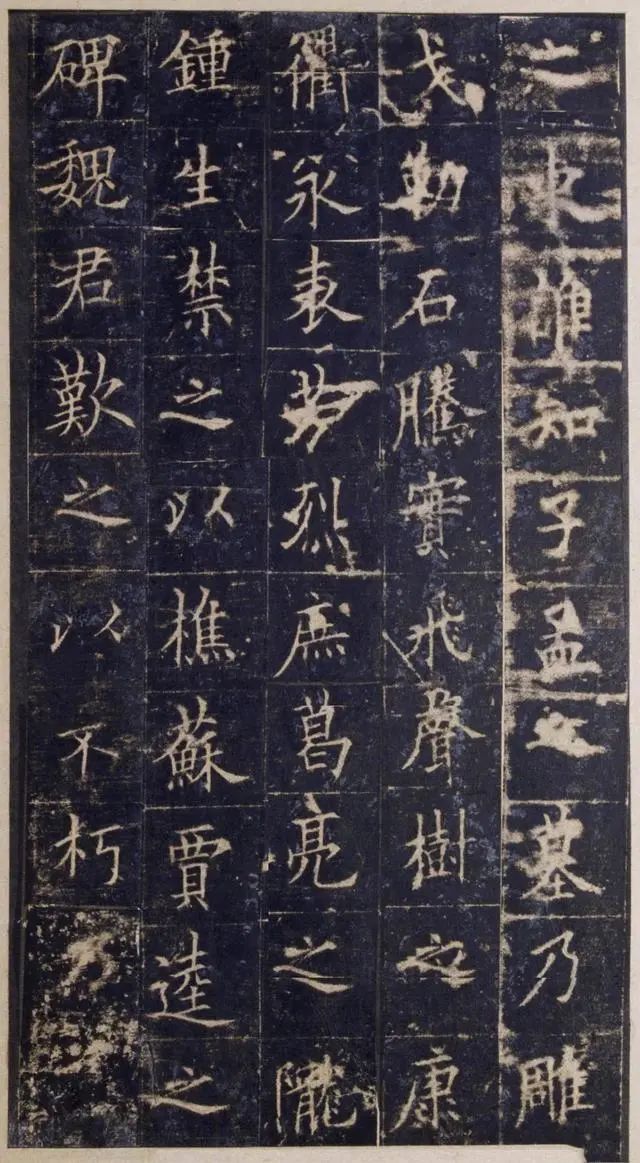 之東誰知子孟之墓乃雕
戈勒石騰實飛聲樹之康
衢永表芳烈庶葛亮之隴
鍾生禁之以樵蘇賈逵之
碑魏君歎之以不朽